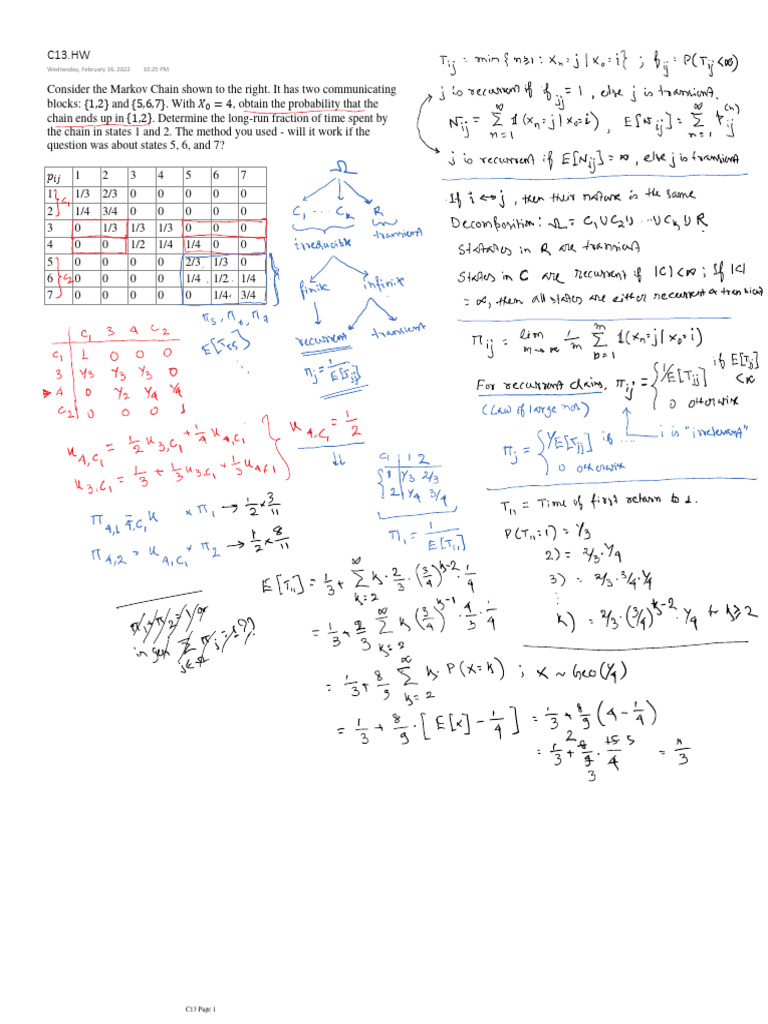 C13.HW
Wednesday, February 16, 2022 10:25 PM
Consider the Markov Chain shown to the right. It has two communicating
blocks: {1,2} and {5,6,7}. With X₀ = 4, obtain the probability that the
chain ends up in {1,2}. Determine the long-run fraction of time spent by
the chain in states 1 and 2. The method you used - will it work if the
question was about states 5, 6, and 7?
pij 1 2 3 4 5 6 7
1 1/3 2/3 0 0 0 0 0
2 1/4 3/4 0 0 0 0 0
3 0 1/3 1/3 1/3 0 0 0
4 0 0 1/2 1/4 1/4 0 0
5 0 0 0 0 2/3 1/3 0
6 0 0 0 0 1/4 1/2 1/4
7 0 0 0 0 0 1/4 3/4
C₁
C₂
π₅, π₆, π₇
E[T₅₅]
C₁ 3 4 C₂
C₁ 1 0 0 0
3 1/3 1/3 1/3 0
4 0 1/2 1/4 1/4
C₂ 0 0 0 1
u₄,C₁ = 1/2 u₃,C₁ + 1/4 u₄,C₁
u₃,C₁ = 1/3 + 1/3 u₃,C₁ + 1/3 u₄,C₁
u₄,C₁ = 1/2
π₄,₁ = u₄,C₁ × π₁ → 1/2 × 3/11
π₄,₂ = u₄,C₁ × π₂ → 1/2 × 8/11
π₁ + π₂ = 1
in gen Σ j∈Ω πj = 1??
Ω
C₁ ... Cₖ R
irreducible transient
finite infinite
recurrent transient
πj = 1/E[Tjj]
C₁ 1 2
1 1/3 2/3
2 1/4 3/4
π₁ = 1/E[T₁₁]
Tij = min{n≥1: Xn = j | X₀ = i} ; fij = P(Tij < ∞)
j is recurrent if fjj = 1, else j is transient.
Nij = ∞ Σ n=1 1(Xn = j | X₀ = i), E[Nij] = ∞ Σ n=1 pij⁽ⁿ⁾
j is recurrent if E[Njj] = ∞, else j is transient
If i ↔ j, then their nature is the same
Decomposition: Ω = C₁ ∪ C₂ ∪ ... ∪ Cₖ ∪ R
States in R are transient
States in C are recurrent if |C| < ∞; If |C|
= ∞, then all states are either recurrent or transient
πij = lim m→∞ 1/m m Σ 1(Xn = j | X₀ = i)
For recurrent chains, πij = { 1/E[Tjj] if E[Tjj] < ∞
0 otherwise
(Law of large nos)
πj = { 1/E[Tjj] if .... i is "irrelevant"
0 otherwise
T₁₁ = Time of first return to 1.
P(T₁₁ = 1) = 1/3
2) = 2/3 · 1/4
3) = 2/3 · 3/4 · 1/4
k) = 2/3 · (3/4)ᵏ⁻² · 1/4 for k ≥ 2
E[T₁₁] = 1/3 + ∞ Σ k=2 k · 2/3 · (3/4)ᵏ⁻² · 1/4
= 1/3 + 2/3 ∞ Σ k=2 k (3/4)ᵏ⁻¹ · 4/3 · 1/4
= 1/3 + 8/9 ∞ Σ k=2 k · P(X = k) ; X ~ Geo(1/4)
= 1/3 + 8/9 · [E[X] − 1/4] = 1/3 + 8/9 (4 − 1/4)
= 1/3 + 8/9 · 15/4 = 11/3
C13 Page 1